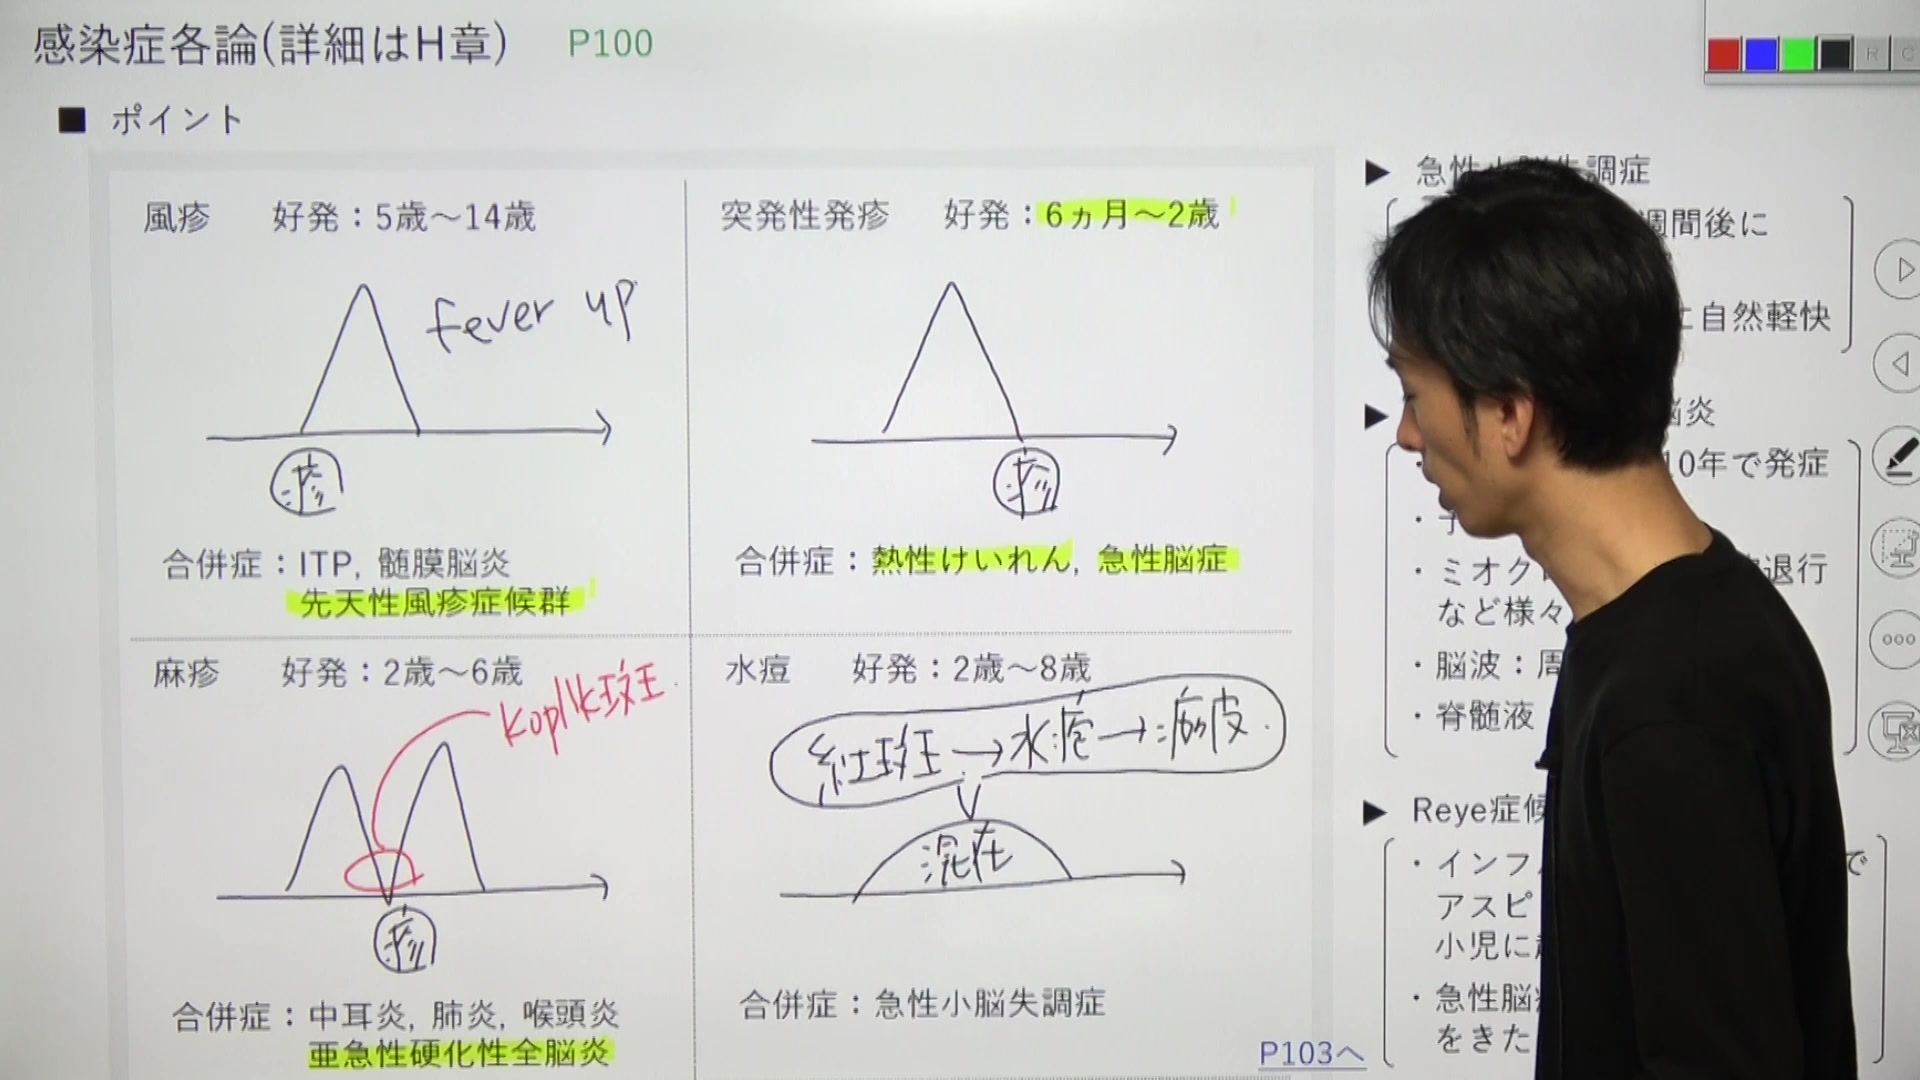 感染症各論(詳細はH章) P100
■ ポイント
風疹 好発：5歳〜14歳
Fever up
疹
合併症：ITP, 髄膜脳炎
先天性風疹症候群
突発性発疹 好発：6ヵ月〜2歳
疹
合併症：熱性けいれん, 急性脳症
麻疹 好発：2歳〜6歳
Koplik斑
疹
合併症：中耳炎, 肺炎, 喉頭炎
亜急性硬化性全脳炎
水痘 好発：2歳〜8歳
紅斑→水疱→痂皮
混在
合併症：急性小脳失調症
P103へ
▶ 急性小脳失調症
週間後に
に自然軽快
▶
脳炎
10年で発症
・
・ミオク 退行
など様々
・脳波：周
・脊髄液
▶ Reye症候
・インフル で
アスピ
小児に
・急性脳
をきた
R